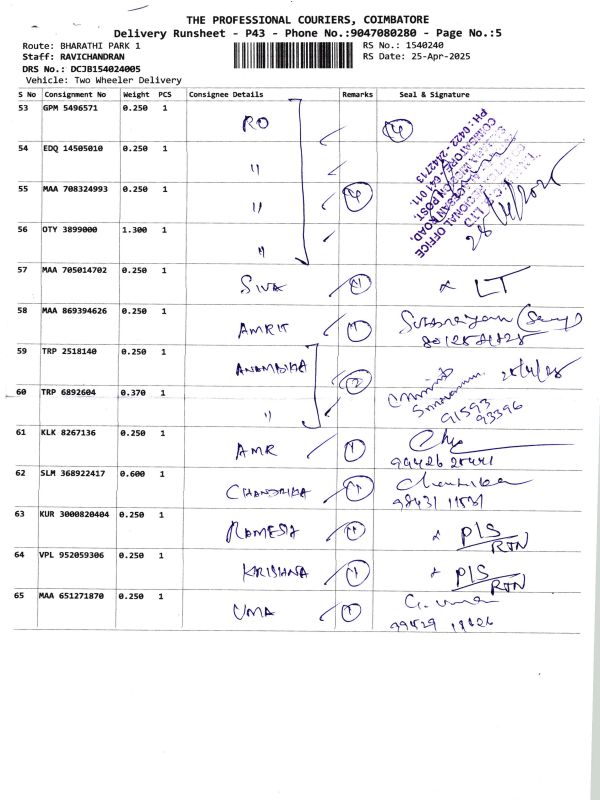 THE PROFESSIONAL COURIERS, COIMBATORE
Delivery Runsheet - P43 - Phone No.:9047080280 - Page No.:5
Route: BHARATHI PARK 1 RS No.: 1540240
Staff: RAVICHANDRAN RS Date: 25-Apr-2025
DRS No.: DCJB154024005
Vehicle: Two Wheeler Delivery
S No Consignment No Weight PCS Consignee Details Remarks Seal & Signature
53 GPM 5496571 0.250 1 RO 4
54 EDQ 14505010 0.250 1 "
55 MAA 708324993 0.250 1 " 4
56 OTY 3899000 1.300 1 "
REGIONAL OFFICE
COIMBATORE - 641 011.
PH : 0422 - 2442713
57 MAA 705014702 0.250 1 SIVA 1 LT
58 MAA 869394626 0.250 1 AMRIT 1
59 TRP 2518140 0.250 1 2
60 TRP 6892604 0.370 1 "
91593
93396
61 KLK 8267136 0.250 1 AMR 1
62 SLM 368922417 0.600 1 CHANDRIKA 1 Chandrika
63 KUR 3000820404 0.250 1 RAMESH 1 x P/S
RTN
64 VPL 952059306 0.250 1 KRISHNA 1 x P/S
RTN
65 MAA 651271870 0.250 1 UMA 1 G. Uma